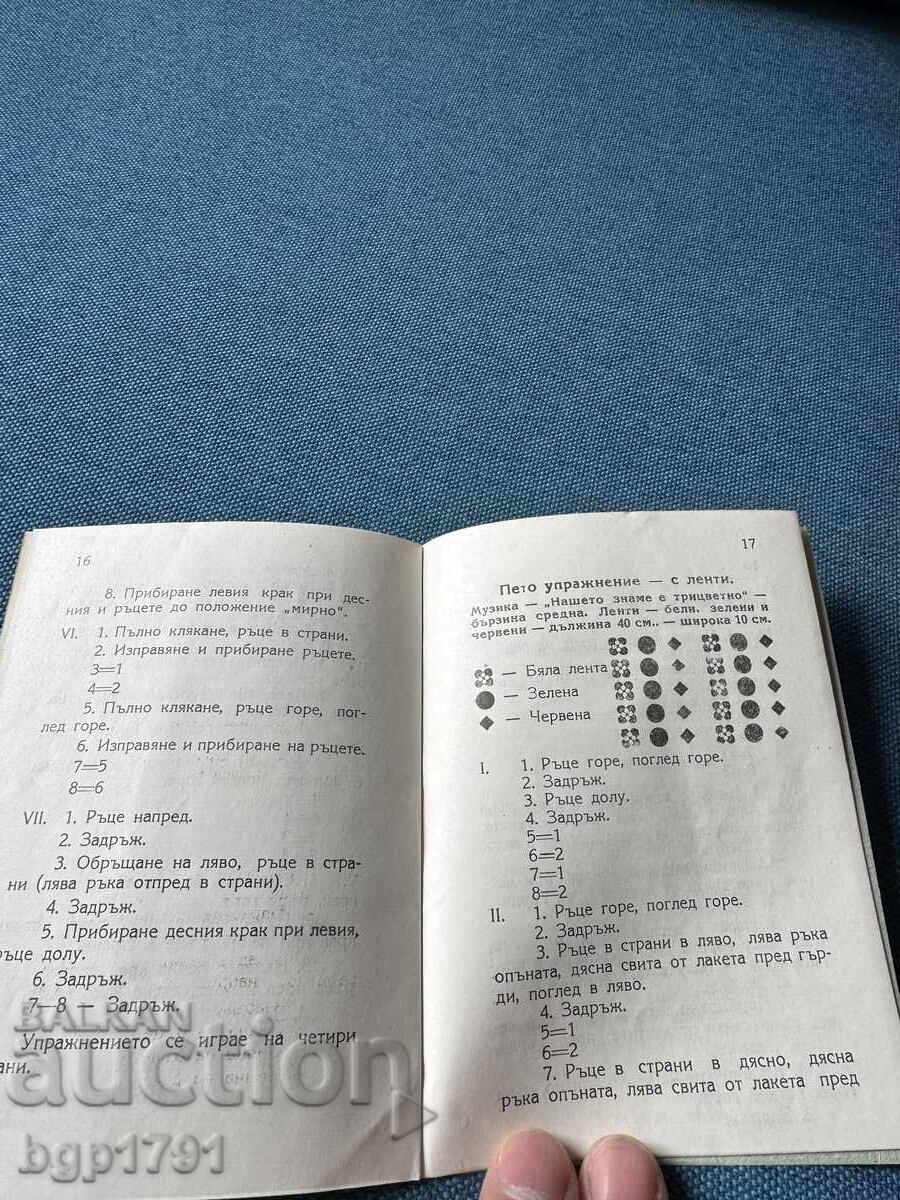 16
8. Прибиране левия крак при дес-
ния и ръцете до положение „мирно“.
VI. 1. Пълно клякане, ръце в страни.
2. Изправяне и прибиране ръцете.
3=1
4=2
5. Пълно клякане, ръце горе, пог-
лед горе.
6. Изправяне и прибиране на ръцете.
7=5
8=6
VII. 1. Ръце напред.
2. Задръж.
3. Обръщане на ляво, ръце в стра-
ни (лява ръка отпред в страни).
4. Задръж.
5. Прибиране десния крак при левия,
ръце долу.
6. Задръж.
7—8 — Задръж.
Упражнението се играе на четири
ани.
17
Пето упражнение — с ленти.
Музика — „Нашето знаме е трицветно“ —
бързина средна. Ленти — бели, зелени и
червени — дължина 40 см.. — широка 10 см.
— Бяла лента
— Зелена
— Червена
I. 1. Ръце горе, поглед горе.
2. Задръж.
3. Ръце долу.
4. Задръж.
5=1
6=2
7=1
8=2
II. 1. Ръце горе, поглед горе.
2. Задръж.
3. Ръце в страни в ляво, лява ръка
опъната, дясна свита от лакета пред гър-
ди, поглед в ляво.
4. Задръж.
5=1
6=2
7. Ръце в страни в дясно, дясна
ръка опъната, лява свита от лакета пред
BALKAN
auction
bgp1791